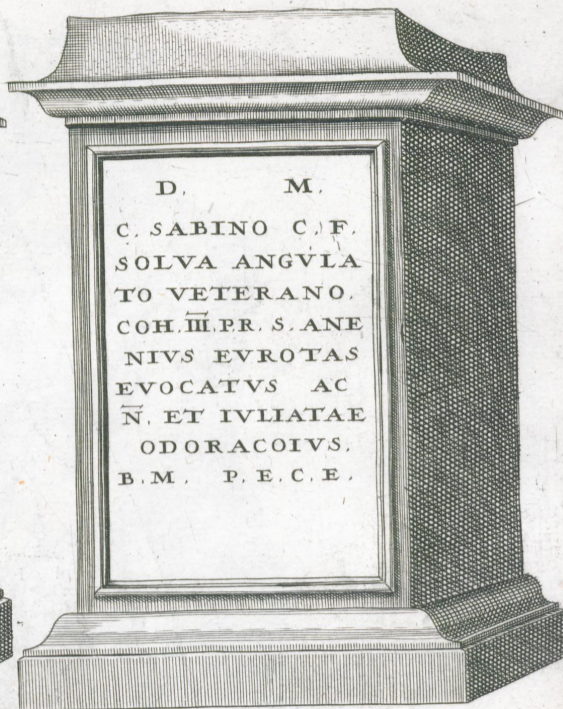 D. M.
C. SABINO C. F.
SOLVA ANGVLA
TO VETERANO.
COH. I̅I̅I̅. P.R. S. ANE
NIVS EVROTAS
EVOCATVS AC
N̅. ET IVLIATAE
ODORACOIVS.
B. M. P. E. C. E.